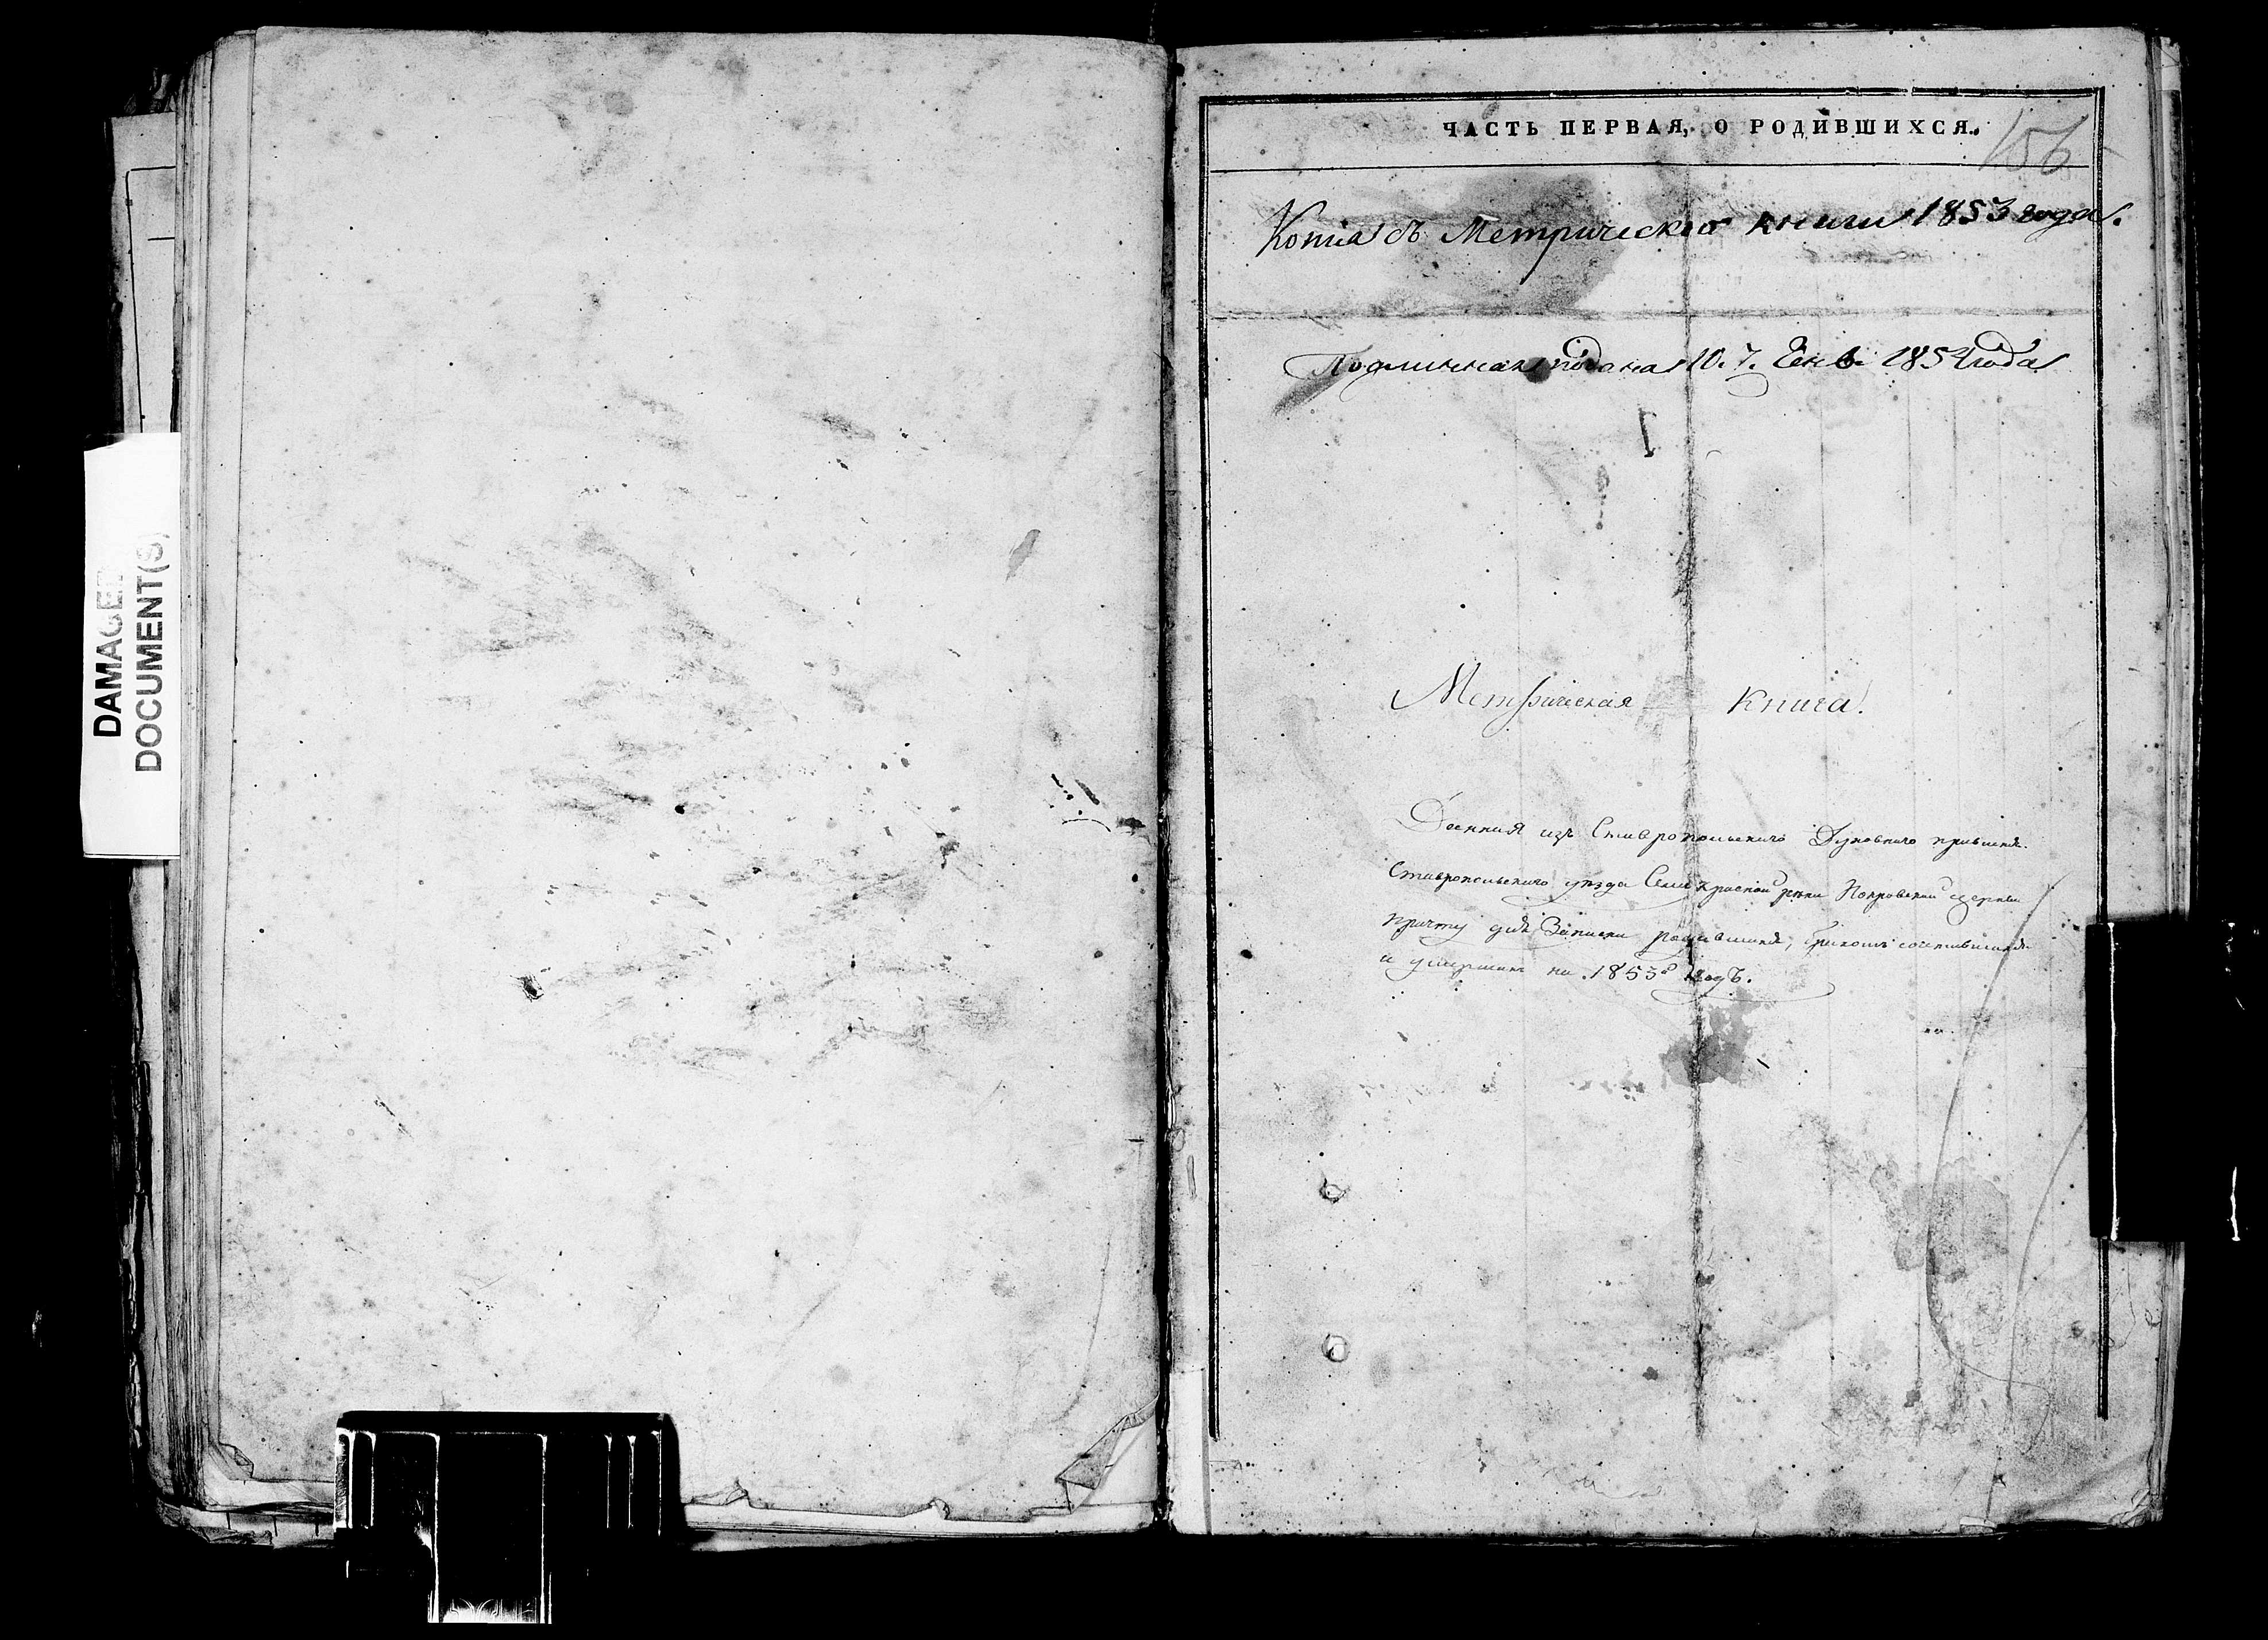 DAMAGED
DOCUMENT(S)
ЧАСТЬ ПЕРВАЯ, О РОДИВШИХСЯ.
156
Копиа съ Метрической книги 1853 года.
Подлинная подана 10. Генв. 1854 года
Метрическая книга.
Данная изъ Ставропольскаго Духовного правленія
Ставропольскаго уѣзда Села Красной рѣки Покровской церкви
причту для Записки родившихся, бракомъ сочетавшихся
и умершихъ на 1853й годъ.